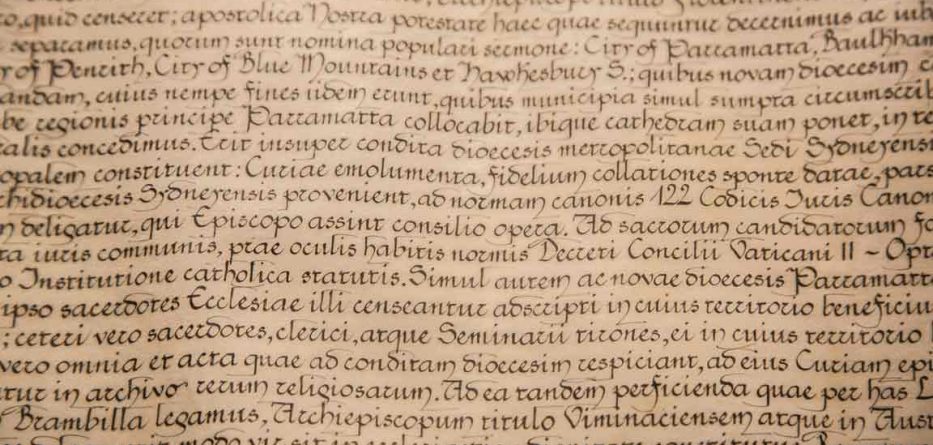 o, quid censeret; apostolica Nostra potestate haec quae sequuntur decernimus ac iub
separamus, quorum sunt nomina populari sermone: City of Parramatta, Baulkham
y of Penrith, City of Blue Mountains et Hawkesbury S.; quibus novam dioecesim c
andam, cuius nempe fines iidem erunt, quibus municipia simul sumpta circumscrib
be regionis principe Parramatta collocabit, ibique cathedram suam ponet, in te
ralis concedimus. Erit insuper condita dioecesis metropolitanae Sedi Sydneyensi
opalem constituent: Curiae emolumenta, fidelium collationes sponte datae, pars
chidioecesis Sydneyensis provenient, ad normam canonis 122 Codicis Iuris Canon
n deligatur, qui Episcopo assint consilio opera. Ad sacrorum candidatorum fo
ta iuris communis, prae oculis habitis normis Decreti Concilii Vaticani II - Opt
o Institutione catholica statutis. Simul autem ac novae dioecesis Parramatt
ipso sacerdotes Ecclesiae illi censeantur adscripti in cuius territorio beneficiu
; ceteri vero sacerdotes, clerici, atque Seminarii tirones, ei in cuius territorio
vero omnia et acta quae ad conditam dioecesim respiciant, ad eius Curiam epi
tur in archivo rerum religiosarum. Ad ea tandem perficienda quae per has L
Brambilla legamus, Archiepiscopum titulo Viminaciensem atque in Aust